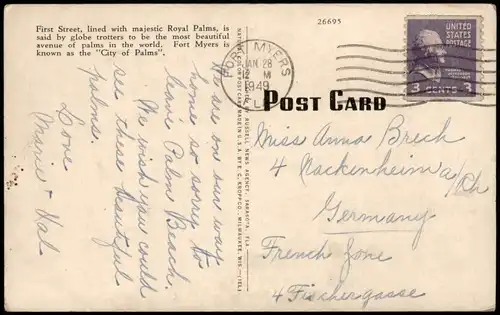 First Street, lined with majestic Royal Palms, is
said by globe trotters to be the most beautiful
avenue of palms in the world. Fort Myers is
known as the "City of Palms".
26695
FORT MYERS
JAN 28
12 M
1949
FLA
UNITED STATES POSTAGE
3 CENTS 3
POST CARD
NATIONAL COLOR POST CARD MADE IN U.S.A. BY E. C. KROPP CO., MILWAUKEE, WIS.
RUSSELL NEWS AGENCY, SARASOTA, FLA.
We are on our way
home so sorry to
leave Palm Beach.
We wish you could
see these beautiful
palms.
Love
Marie + Hal
Miss Anna Brech
4 Nackenheim a/Rh
Germany
French Zone
4 Fischergasse